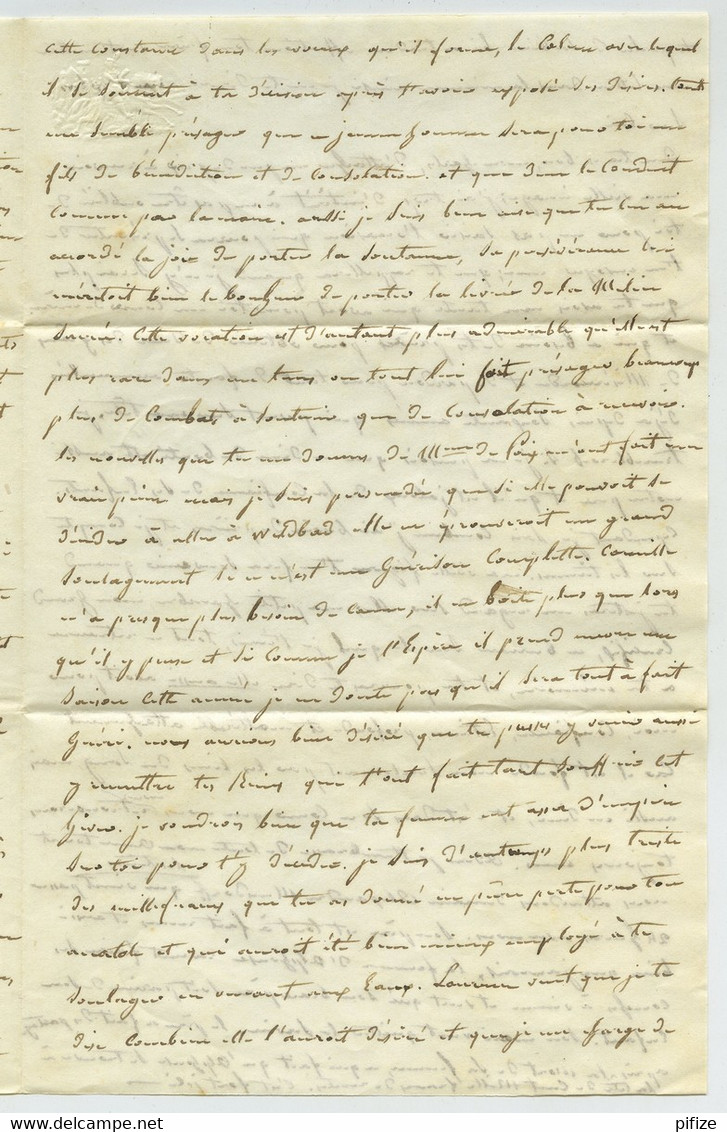 cette constance dans les voeux qu'il forme, le calme avec lequel
il se soumet à ta décision après t'avoir exposé ses désirs. tout
me semble présager que ce jeune homme sera pour toi un
fils de bénédiction et de consolation. et que Dieu le conduit
comme par la main. aussi je suis bien aise que tu lui aie
accordé la joie de porter la soutanne, sa persévérance lui
méritoit bien le bonheur de porter la livrée de la Milice
Sacrée. cette vocation est d'autant plus admirable qu'elle est
plus rare dans un tems ou tout lui fait présager beaucoup
plus de combats à soutenir que de consolation à recevoir.
les nouvelles que tu me donnes de Mme de Poix m'ont fait une
vraie peine mais je suis persuadée que si elle pouvoit se
décider à aller à Wildbad elle en éprouveroit un grand
soulagement si ce n'est une Guérison complette. Camille
n'a presque plus besoin de canne, il ne boite plus que lors
qu'il y pense et si comme je l'Espère il prend encore une
saison cette année je ne doute pas qu'il sera tout à fait
Guéri. nous aurions bien désiré que tu pusses y venir aussi
y remettre tes Reins qui t'ont fait tant souffrir cet
hiver. je voudrois bien que ta femme eut assez d'empire
sur toi pour t'y décider. je suis d'autemps plus triste
des mille francs que tu as donné en pure perte pour ton
et qui auroit été bien mieux employé à te
soulager en venant aux Eaux. Laurence veut que je te
dise combien elle l'auroit désiré et que je me charge de
pifize